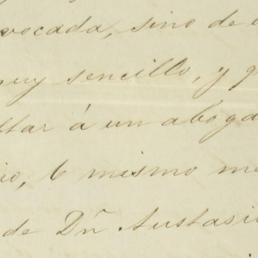 vocada, sino de
muy sencillo, y q
ltar á un aboga
io, ó mismo me
de Dn Anstasio